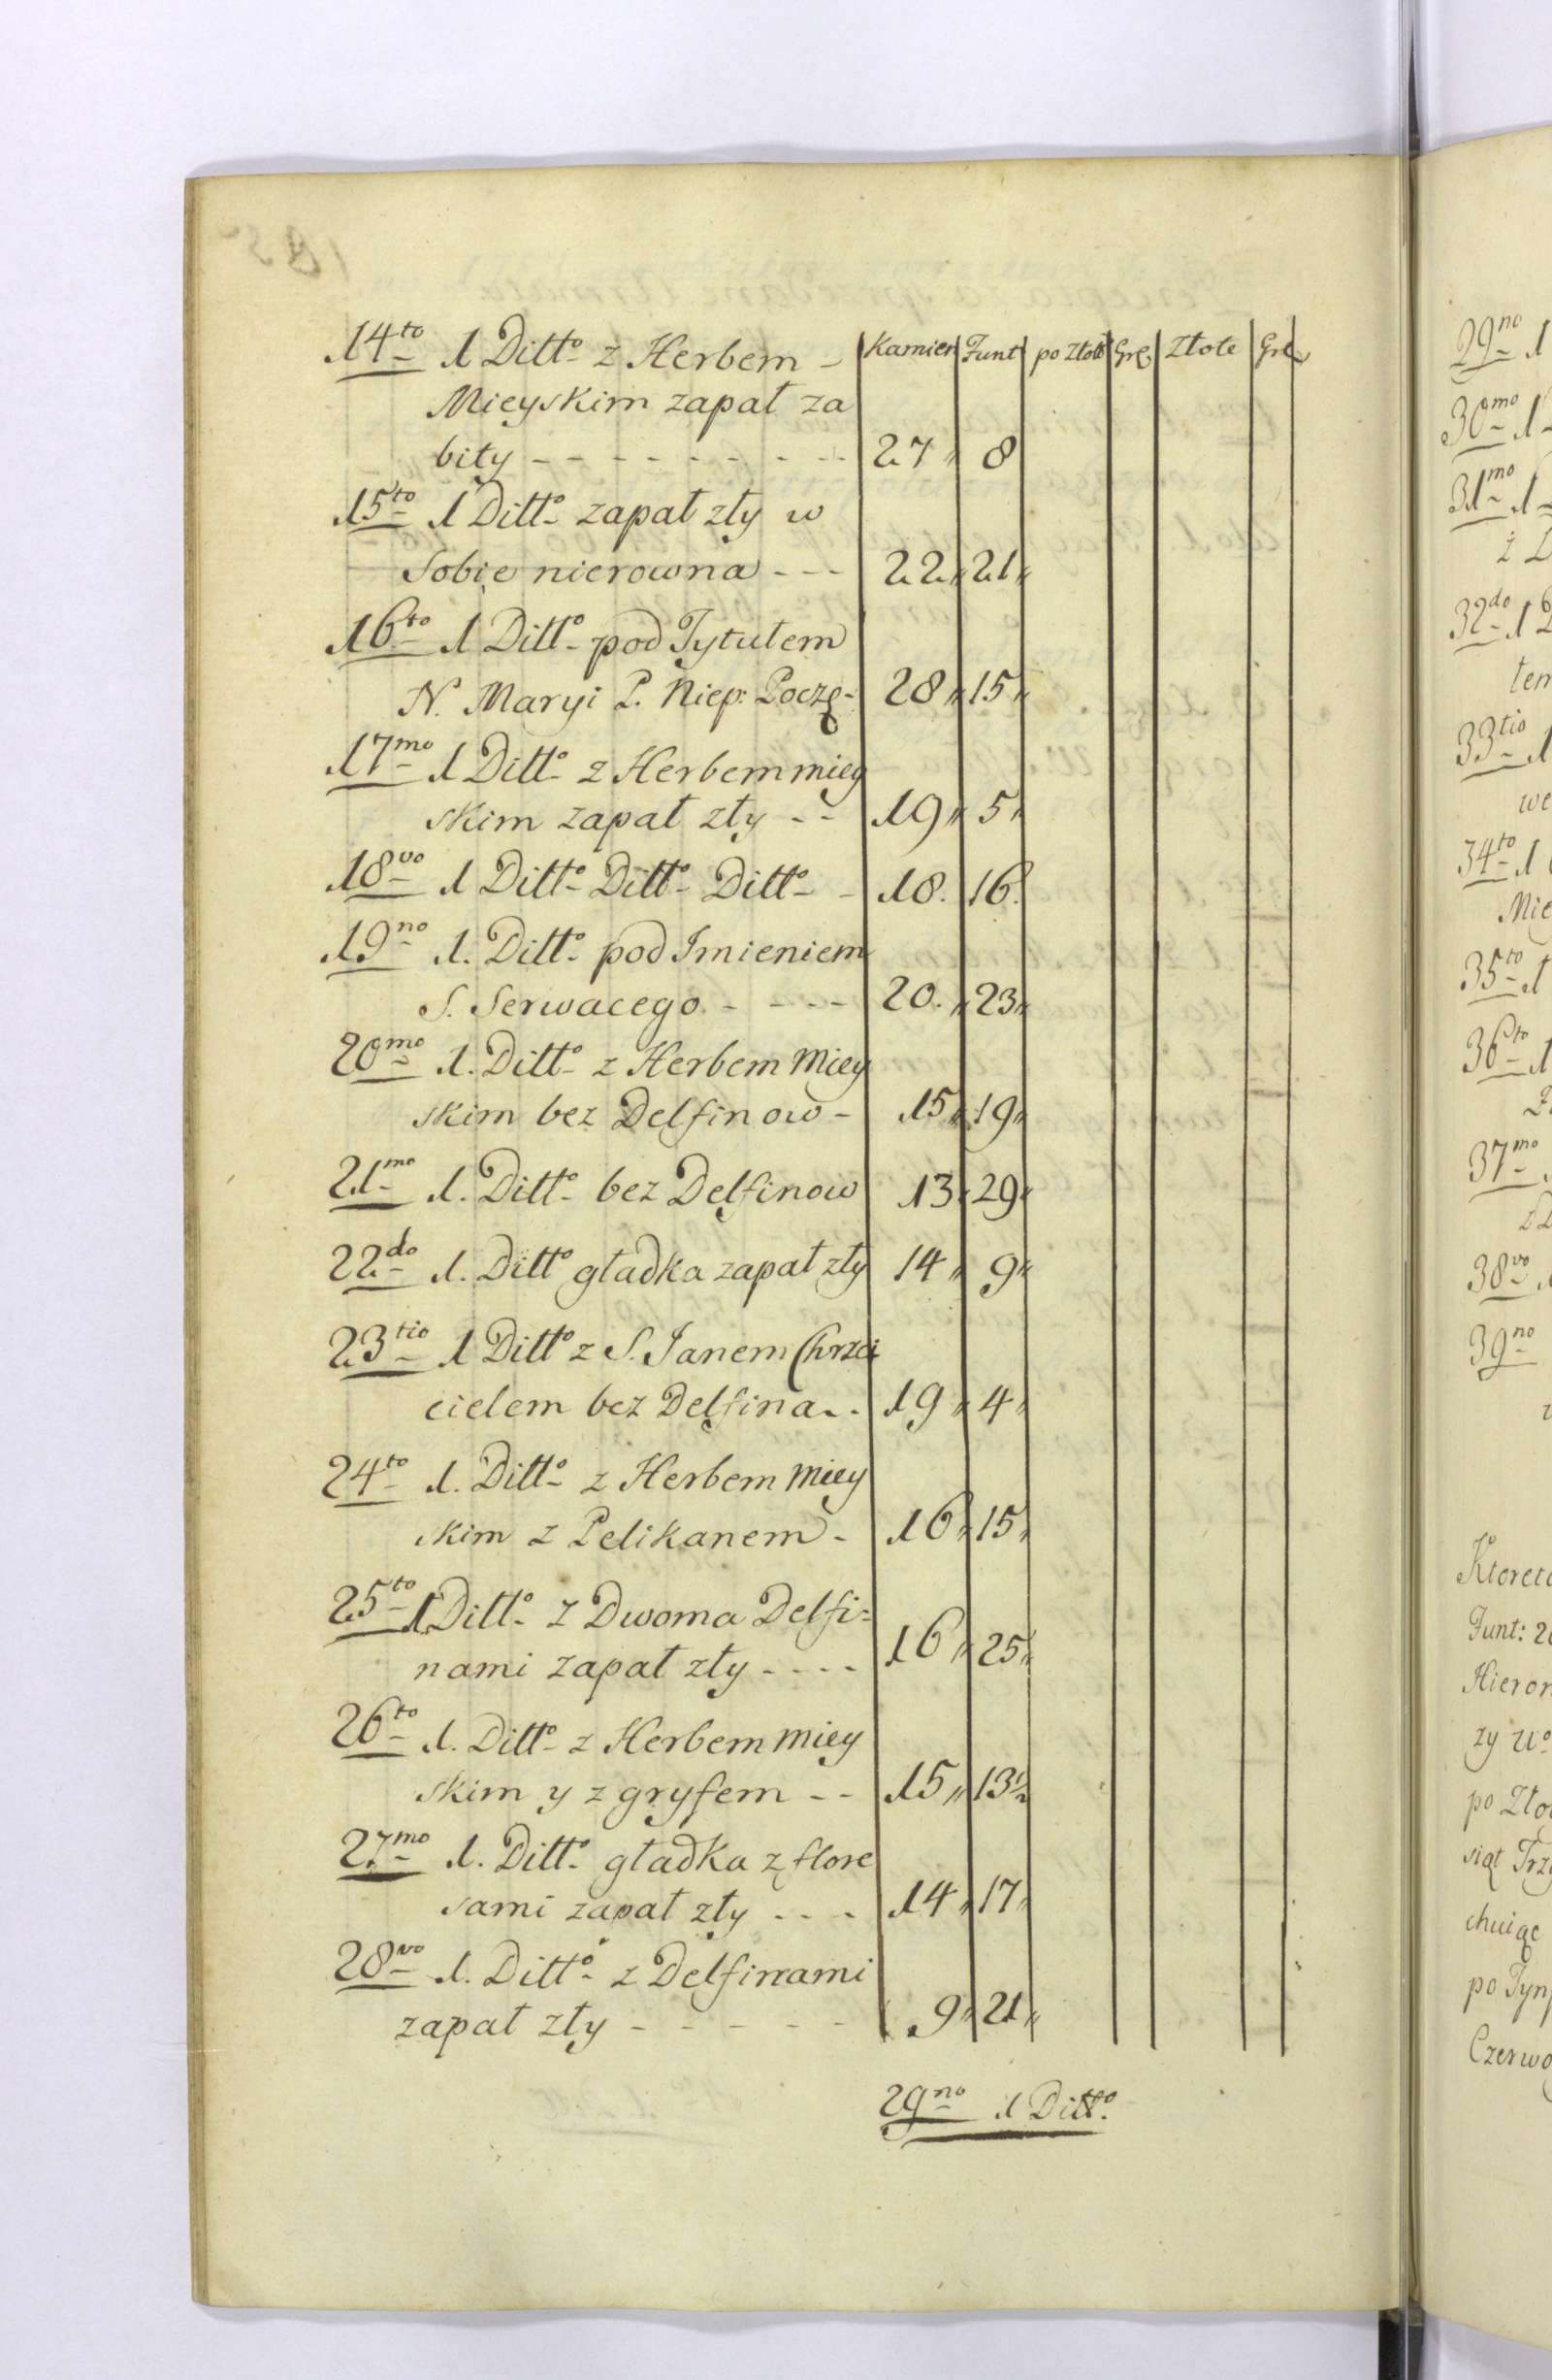 14to 1 Ditto z Herbem - Kamien Funt po Złote Gr. Złote Gr.
Mieyskim zapał za
bity - - - - - - - - - 27 „ 8
15to 1 Ditto zapał zły w
Sobie nierowna - - - 22 „ 21 „
16to 1 Ditto pod Tytułem
N. Maryi P. Niep: Poczę- 28 „ 15 „
17mo 1 Ditto z Herbem miey
skim zapał zły - - 19 „ 5 „
18vo 1 Ditto Ditto Ditto - 18. 16.
19no 1. Ditto pod Imieniem
S. Serwacego. - - - - 20. „ 23 „
20mo 1. Ditto z Herbem Miey
skim bez Delfinow - 15 „ 19 „
21mo 1. Ditto bez Delfinow 13 „ 29 „
22do 1. Ditto gładka zapał zły 14 „ 9 „
23tio 1 Ditto z S. Janem Chrzci
cielem bez Delfina - - 19 „ 4 „
24to 1. Ditto z Herbem Miey
skim z Pelikanem - 16 „ 15 „
25to 1 Ditto z Dwoma Delfi=
nami zapał zły - - - - 16 „ 25 „
26to 1. Ditto z Herbem Miey
skim y z gryfem - - 15 „ 13½
27mo 1. Ditto gładka z flore
sami zapał zły - - - 14 „ 17 „
28vo 1. Ditto z Delfinami
zapał zły - - - - - - 9 „ 21 „
29no 1 Ditto.
29no 1
30mo 1
31mo 1
z D
32do 1
tem
33tio 1
we
34to 1
Mie
35to 1
36to 1
37mo
z D
38vo
39no
Ktoret
Funt: 2
Hieron
zy
po Zło
siąt Trz
chuiąc
po Tyn
Czerwo